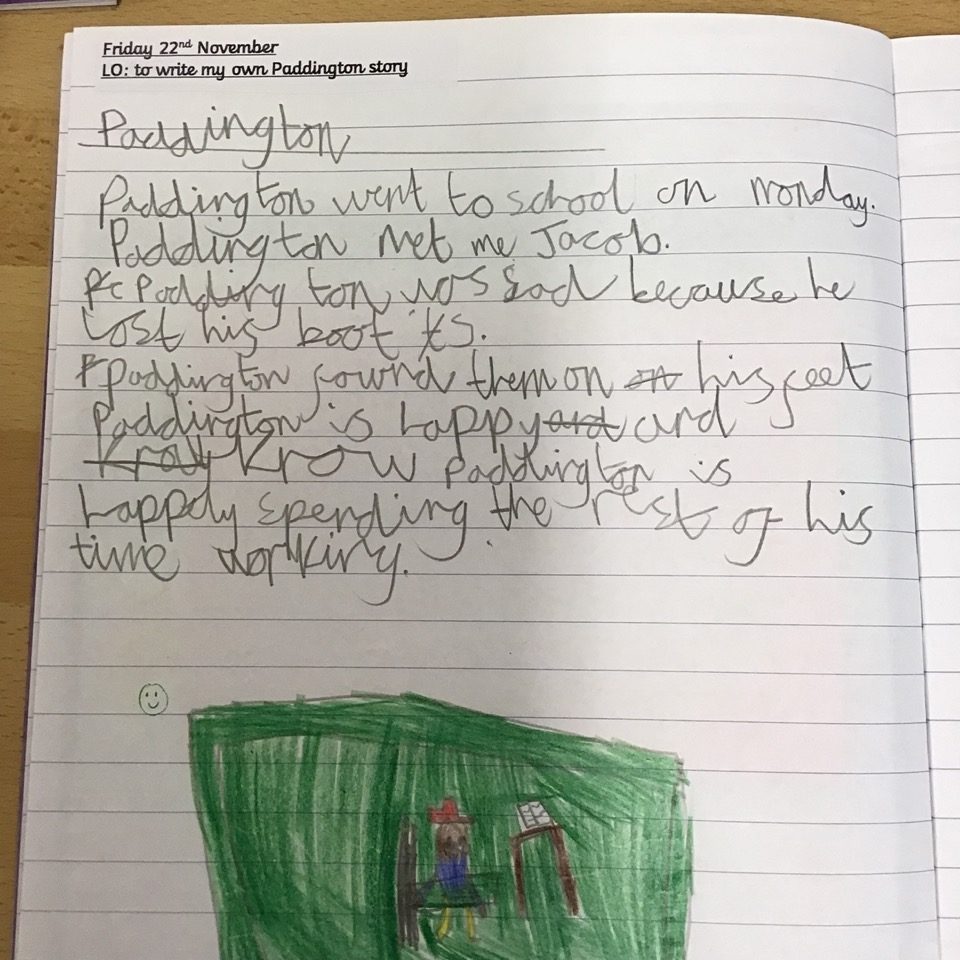 Friday 22nd November
LO: to write my own Paddington story
Paddington
Paddington went to school on monday.
Paddington met me Jacob.
Paddington was sad because he
lost his boots.
Paddington found them on on his feet
Paddington is happy and and
know Paddington is
happely spending the rest of his
time working.